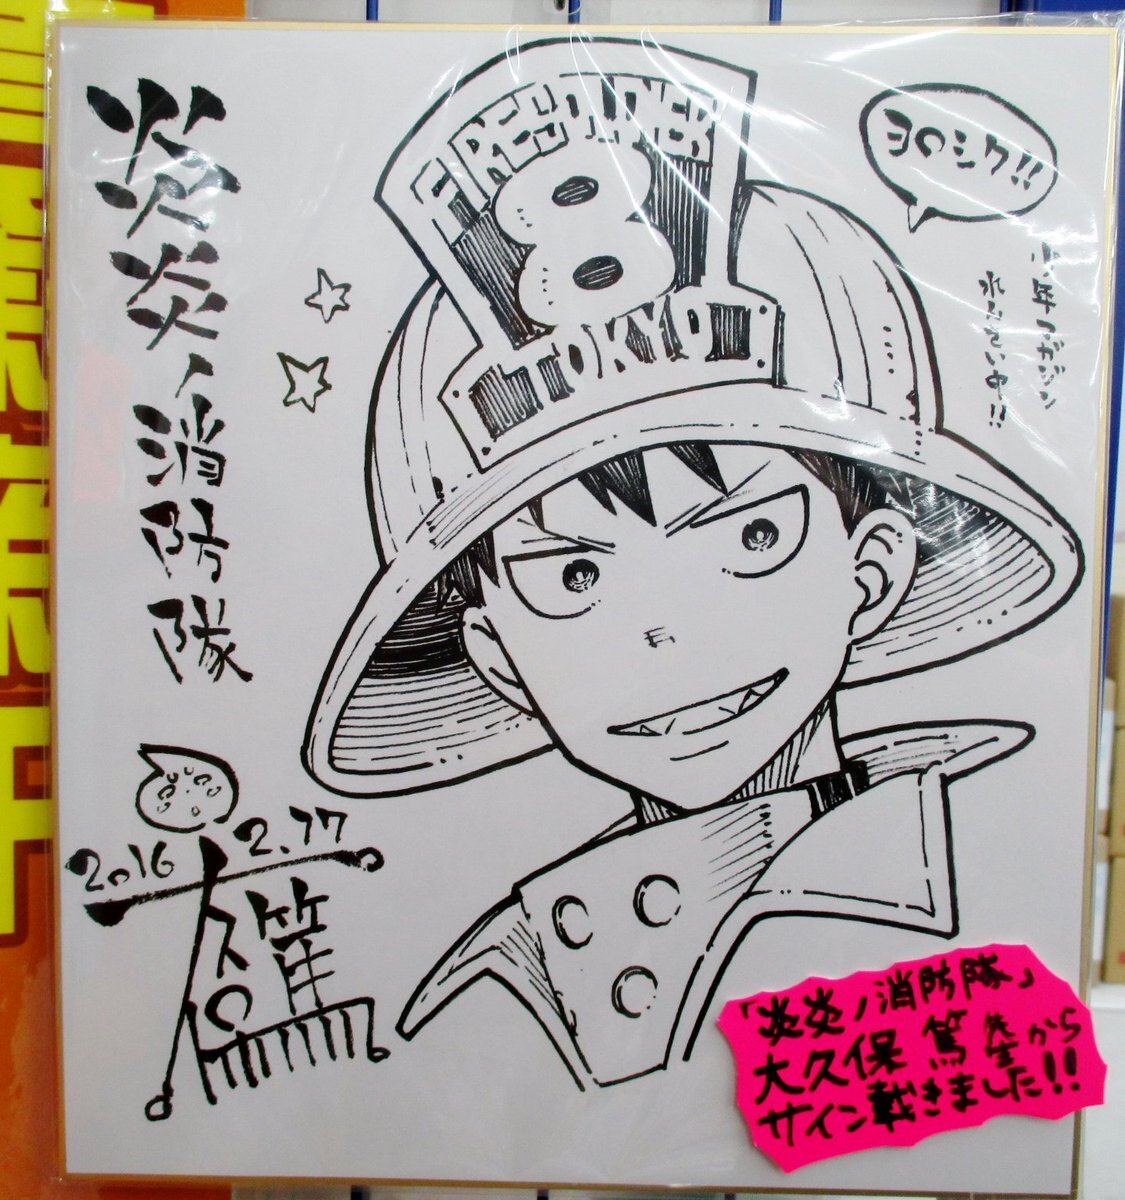 炎炎ノ消防隊
ヨロシク!!
少年マガジン
れんさい中!!
FIRE FORCE
8
TOKYO
2016 2.17
大久保篤
「炎炎ノ消防隊」
大久保 篤 先生から
サイン戴きました!!